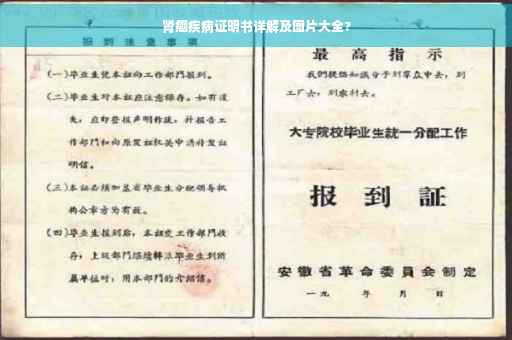 肾癌疾病证明书详解及图片大全?
报到注意事项
(一)毕业生凭本证向工作部门报到。
(二)毕业生对本证应注意保存。如有遗
失,应即登报声明作废,并报告工
作部门和向原发证机关申请补发证
明信。
(三)本证必须加盖省毕业生分配领导机
构公章方为有效。
(四)毕业生报到后,本证交工作部门收
存;上级部门
毕业生到所
属单位时,用本部门的介绍信。
最高指示
我们提倡知识分子到群众中去,到
工厂去,到农村去。
大专院校毕业生统一分配工作
报到証
安徽省革命委員会制定
一九 年 月 日